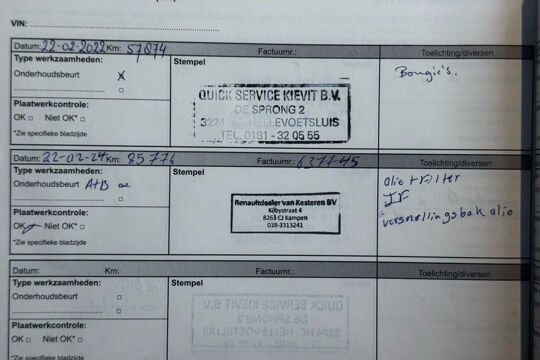 VIN:
Datum: 22-02-2022 Km: 57874 Factuurnr.: Toelichting/diversen
Type werkzaamheden: Stempel
Onderhoudsbeurt x
Bougie's.
QUICK SERVICE KIEVIT B.V.
DE SPRONG 2
3224 HELLEVOETSLUIS
TEL. 0181 - 32 05 55
Plaatwerkcontrole:
OK Niet OK*
*Zie specifieke bladzijde
Datum: 22-02-24 Km: 85776 Factuurnr.: 637745 Toelichting/diversen
Type werkzaamheden: Stempel
Onderhoudsbeurt A+B
olie + filter
IF
versnellingsbak olie
Renaultdealer van Kesteren BV
Kilbystraat 4
8263 CJ Kampen
038-3313241
Plaatwerkcontrole:
OK Niet OK*
*Zie specifieke bladzijde
Datum: Km: Factuurnr.: Toelichting/diversen
Type werkzaamheden: Stempel
Onderhoudsbeurt
Plaatwerkcontrole:
OK Niet OK*
*Zie specifieke bladzijde